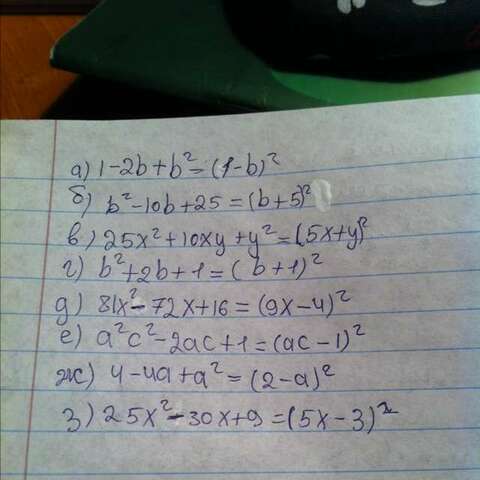 а) 1-2b+b²=(1-b)²
б) b²-10b+25=(b+5)²
в) 25x²+10xy+y²=(5x+y)²
г) b²+2b+1=(b+1)²
д) 81x²-72x+16=(9x-4)²
е) a²c²-2ac+1=(ac-1)²
ж) 4-4a+a²=(2-a)²
з) 25x²-30x+9=(5x-3)²